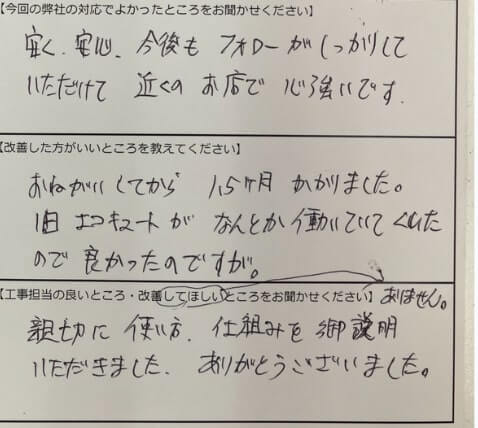 【今回の弊社の対応でよかったところをお聞かせください】
安く、安心、今後もフォローがしっかりして
いただけて 近くのお店で 心強いです.
【改善した方がいいところを教えてください】
おねがいしてから 1,5ヶ月 かかりました。
旧エコキュートが なんとか働いていてくれた
ので良かったのですが。
【工事担当の良いところ・改善してほしいところをお聞かせください】 ありません。
親切に 使い方、仕組みを御説明
いただきました. ありがとうございました。